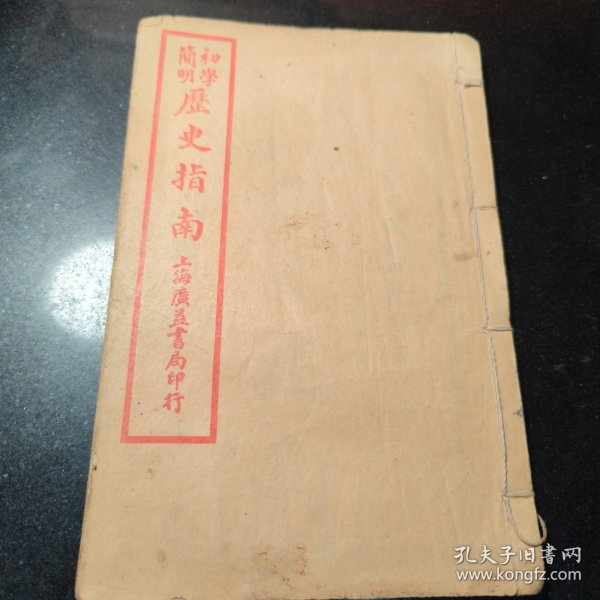 初學
簡明
歷史指南
上海廣益書局印行
孔夫子旧書网
www.kongfz.com